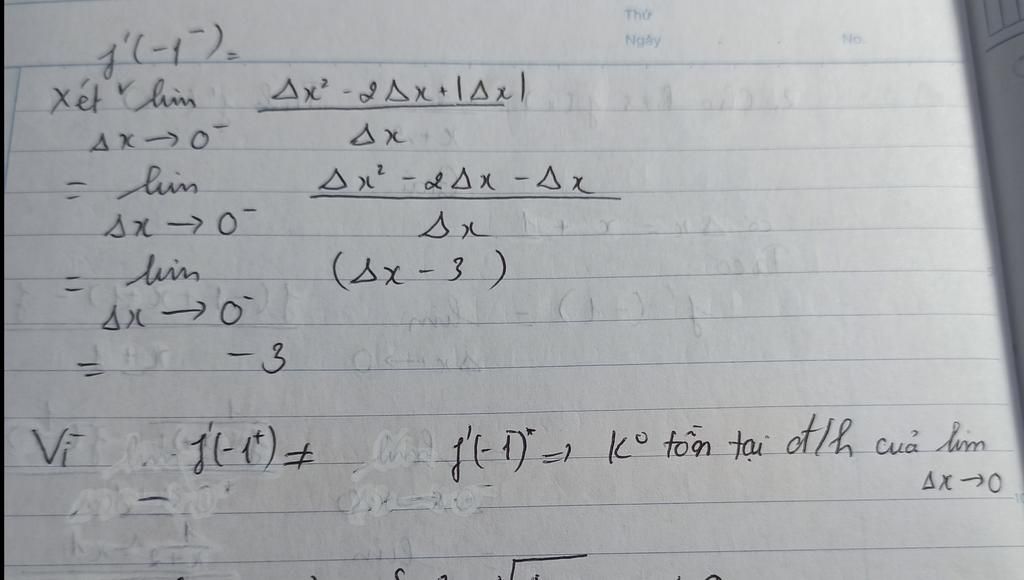 Thứ
Ngày No.
f'(-1⁻) =
Xét lim Δx² - 2Δx + |Δx|
Δx → 0⁻ Δx
= lim Δx² - 2Δx - Δx
Δx → 0⁻ Δx
= lim (Δx - 3)
Δx → 0⁻
= -3
Vì f'(-1⁺) ≠ f'(-1⁻) => K° tồn tại đ/h của lim
Δx → 0